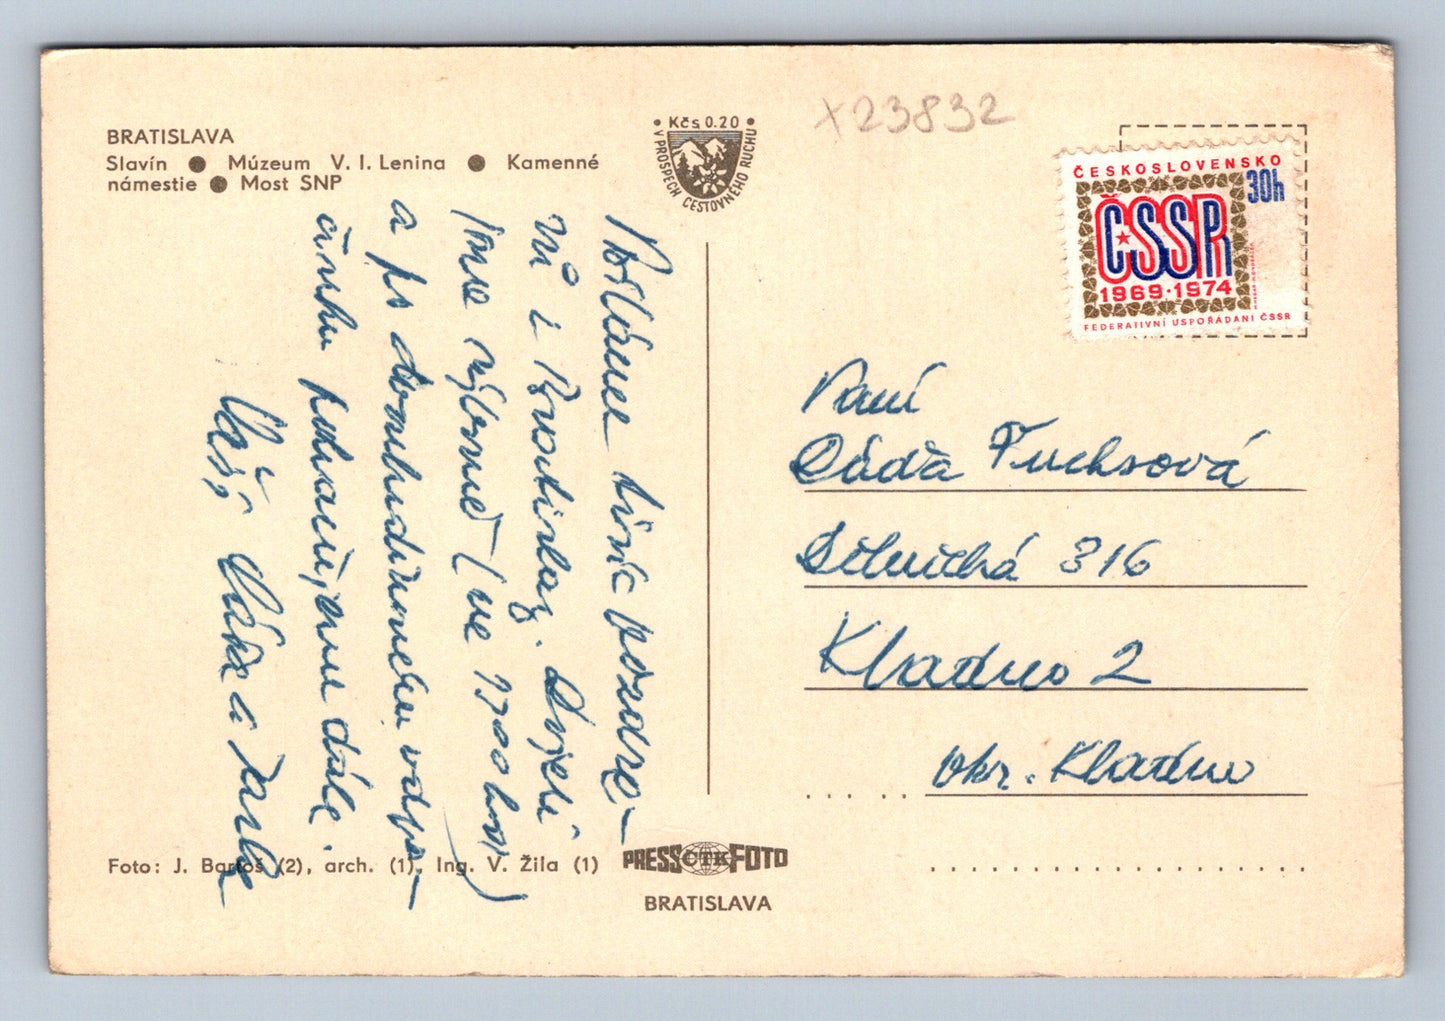 BRATISLAVA
Slavín ● Múzeum V. I. Lenina ● Kamenné
námestie ● Most SNP
• Kčs 0.20 •
V PROSPECH CESTOVNÉHO RUCHU
x23832
ČESKOSLOVENSKO
30h
ČSSR
1969·1974
FEDERATIVNÍ USPOŘÁDÁNÍ ČSSR
Posíláme tisíc pozdra-
vů z Bratislavy. Dojeli
jsme výborně (ve 1700 hod)
a po
dále.
Vaši Láďa a Jarka
Paní
Dáďa Fuchsová
316
Kladno 2
okr. Kladno
Foto: J. Bartoš (2), arch. (1), Ing. V. Žila (1)
PRESS ČTK FOTO
BRATISLAVA